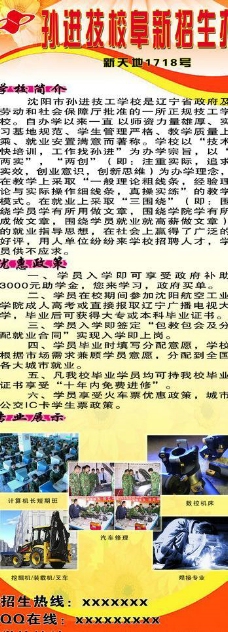 孙进技校阜新招生办
新天地1718号
学校简介
沈阳市孙进技工学校是辽宁省政府及
劳动和社会保障厅批准的一所正规技工学
校。自办学以来一直以师资力量雄厚、实
习基地规范、学生管理严格、教学质量上
乘、就业安置满意而著称。学校以“技术
快培训，工作找孙进”为办学宗旨，以“
两实”，“两创”（即：注重实际，追求
实效，创业意识，创新思维）为办学理念，
在教学上采取“一般理论粗线条，经验理
论与实际操作细线条，真操实练”的教学
模式。在就业上采取“三围绕”（即：围
绕学员学有所用做文章，围绕学院学有所
成做文章，围绕学员就业就高薪做文章）
的就业指导思想，在社会上赢得了广泛的
好评，用人单位纷纷来学校招聘人才，学
员供不应求。
优惠政策
一、学员入学即可享受政府补助
3000元助学金，您来学习，政府买单。
二、学员在校期间参加沈阳航空工业
学院成人高考或直接报取辽宁广播电视大
学，毕业后可获得大专或本科毕业证书。
三、学员入学即签定“包教包会及分
配就业合同”实现入学即上岗。
四、学员毕业时填写分配意愿，学校
根据市场需求兼顾学员意愿，分配到全国
各大城市就业。
五、凡我校毕业学员均可持我校毕业
证书享受“十年内免费进修”。
六、学员享受火车票优惠政策，城市
公交IC卡学生票政策。
专业展示
计算机长短期班
汽车修理
数控机床
挖掘机/装载机/叉车
焊接专业
招生热线：xxxxxxx
QQ在线：xxxxxxx